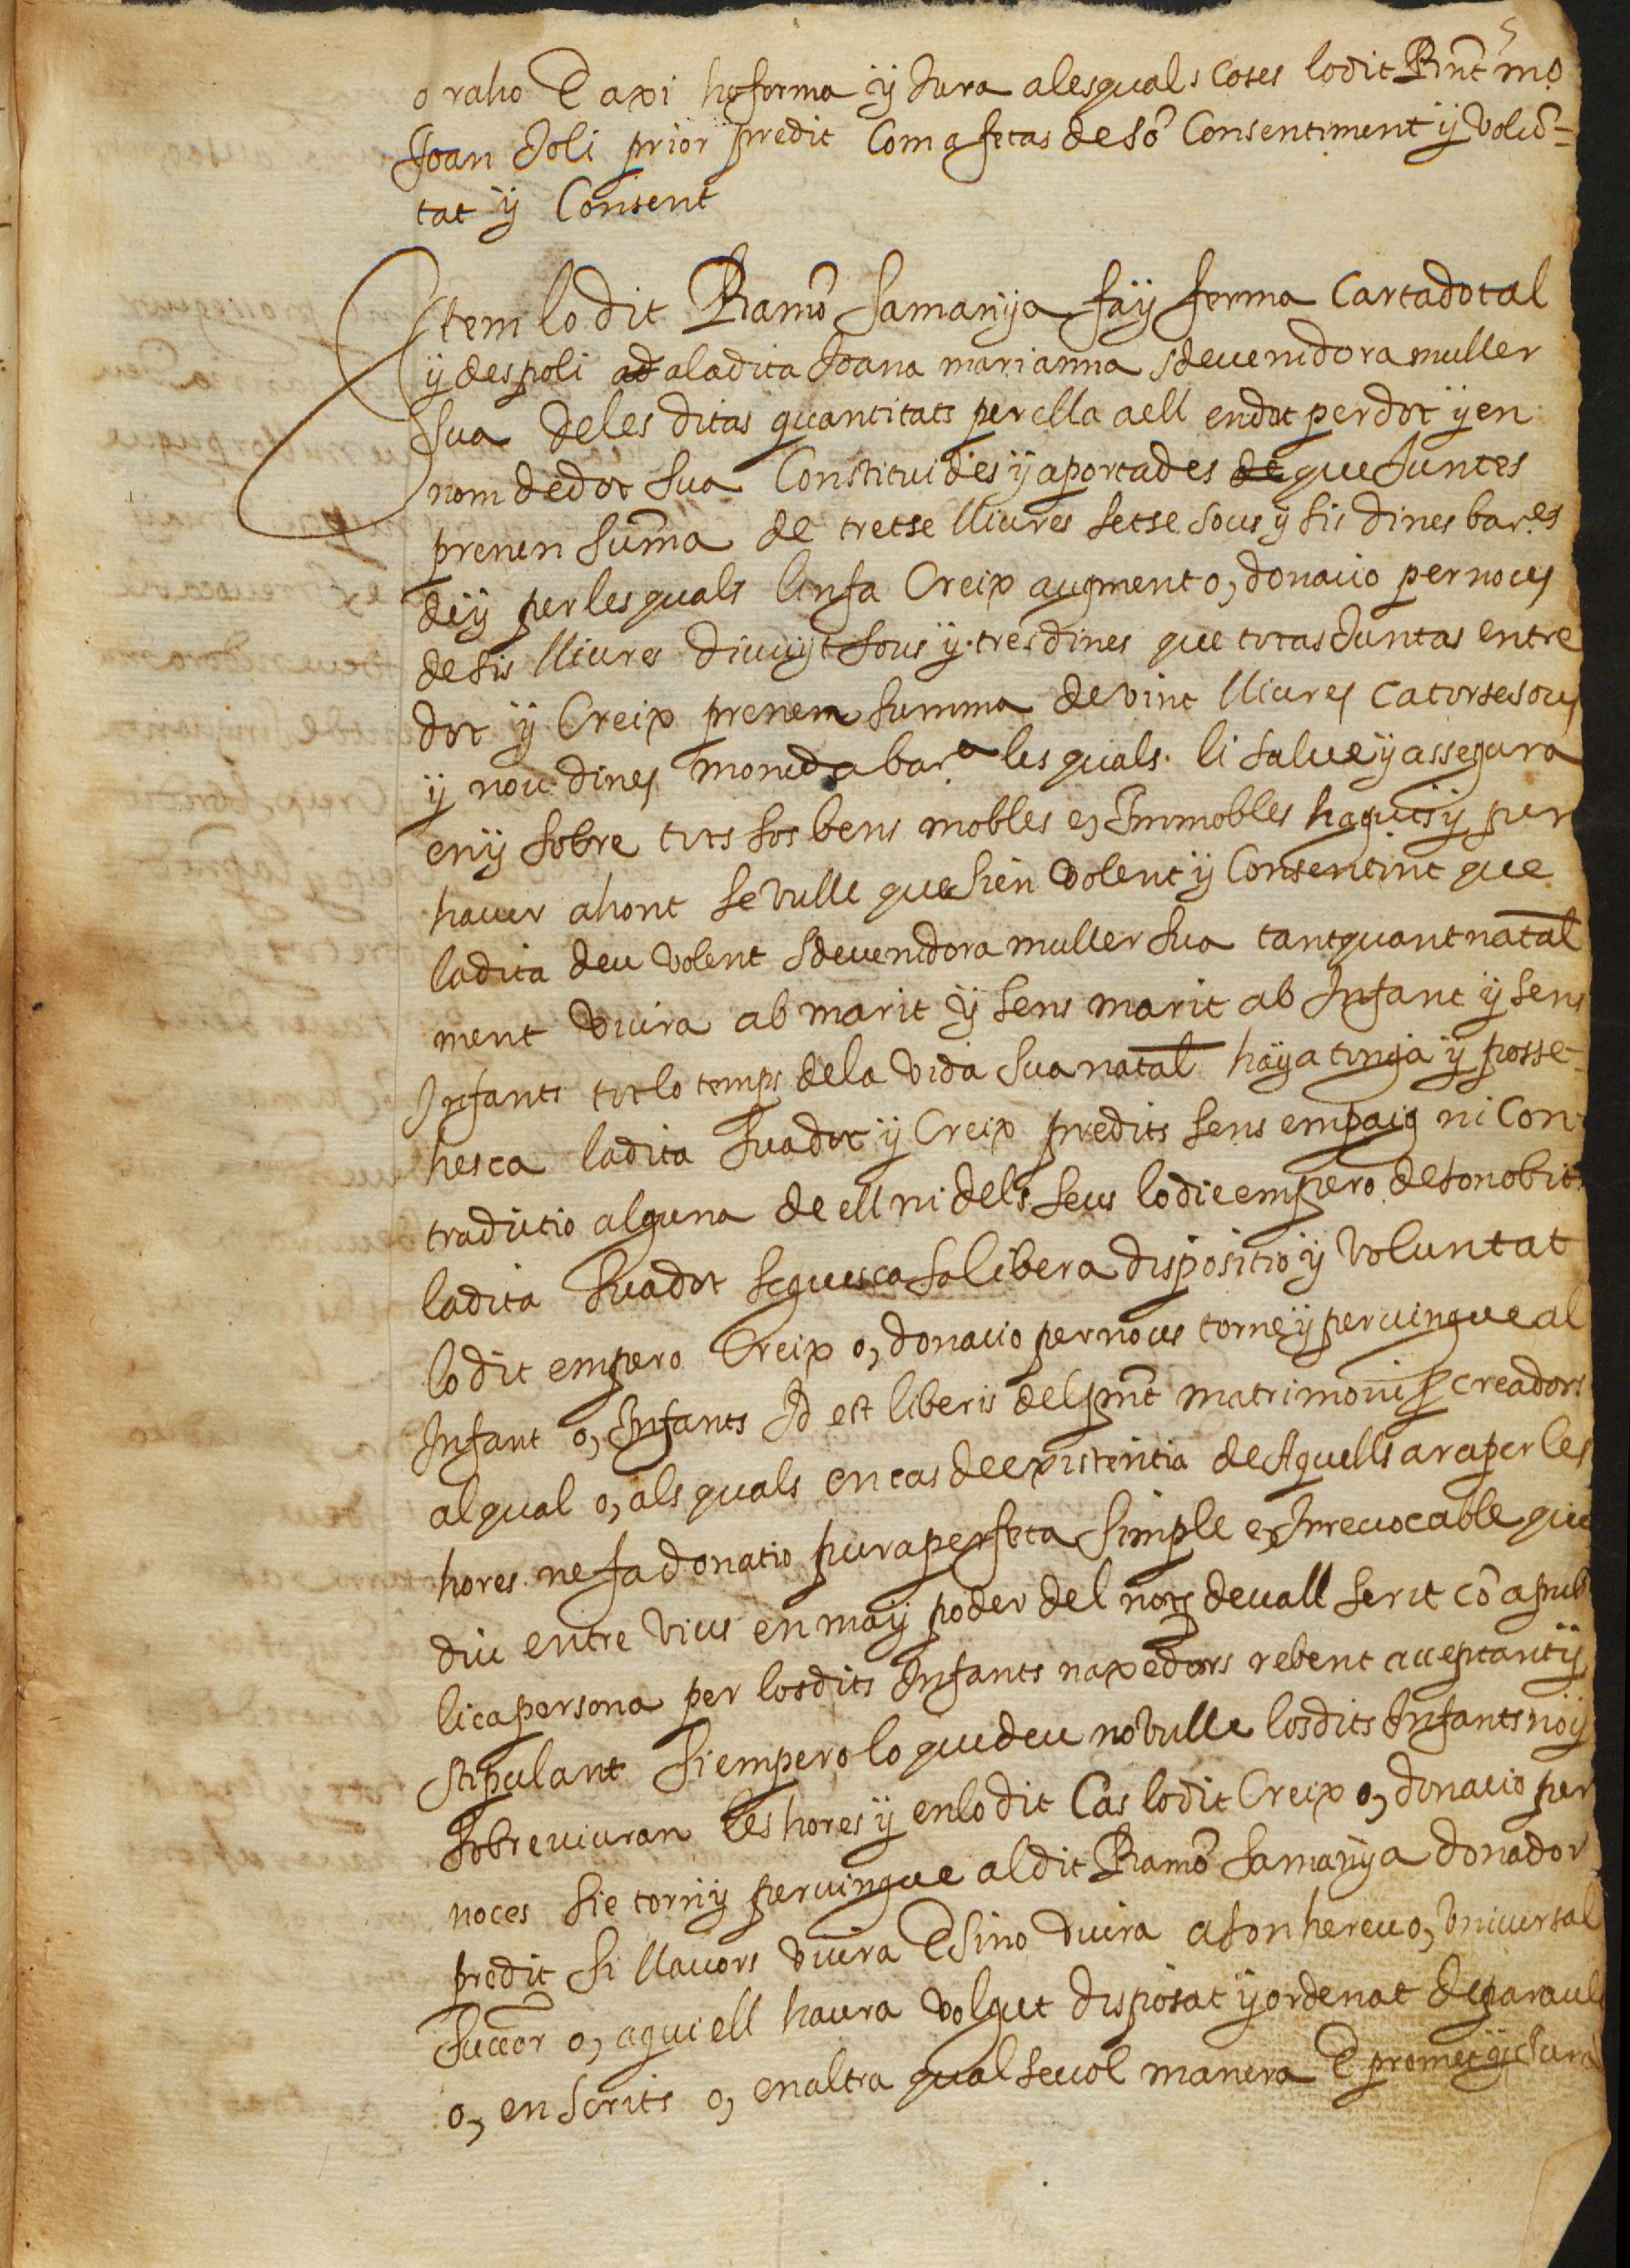 5
o raho E axi ho forma ÿ Jura alesquals coses lodit Rñt mº
Joan Joli prior predit Com a fetas de sõ Consentiment ÿ volũ-
tat ÿ Consent
Item lo dit Ramõ Samanÿa fa ÿ ferma Carta dotal
ÿ despoli ad a la dita Joana marianna sdevenidora muller
sua de les ditas quantitats per ella a ell en dot per dot ÿ en
nom de dot sua Constituides ÿ aportades de que Juntes
prenen suma de tretse lliures setse sous ÿ sis dines bar.es
de ÿ per les quals li nfa Creix augment o, donacio per noces
de sis lliures divuÿt sous ÿ tres dines que totas Juntas entre
dot ÿ Creix prenem summa de vint lliures catorse sous
ÿ nou dines moneda bar.a les quals li salve ÿ assegura
en ÿ sobre tots sos bens mobles e, Immobles haguts ÿ per
haver ahont se vulle que sien volent ÿ Consentint que
la dita deu volent sdevenidora muller sua tant quant natal
ment viura ab marit ÿ sens marit ab Infant ÿ sens
Infants tot lo temps de la vida sua natal haÿa tinga ÿ posse-
hesca la dita sua dot ÿ Creix predits sens empaig ni Con-
tradictio alguna de ell ni dels seus lo die empero de son obit
la dita sua dot seguesca sa libera dispositio ÿ voluntat
lo dit empero Creix o, donacio per noces torne ÿ pervingue al
Infant o, Infants Id est liberis del pñt matrimoni p creadors
al qual o, als quals en cas de existentia de Aquells ara per les
hores ne fa donatio pura perfeta simple e, Irrevocable que
diu entre vius en ma ÿ poder del nots devall scrit cõ a pub
lica persona per los dits Infants naxedors rebent acceptant ÿ
stipulant si empero lo que deu no vulle los dits Infants no ÿ
sobreviuran les hores ÿ en lo dit Cas lo dit Creix o, donacio per
noces sie torn ÿ pervingue al dit Ramõ Samanÿa donador
predit si llavors viura E sino viura a son hereu o, universal
succor o, a qui ell haura volgut disposat ÿ ordenat de paraula
o, en scrits o, en altra qual sevol manera E promet ÿ Jura